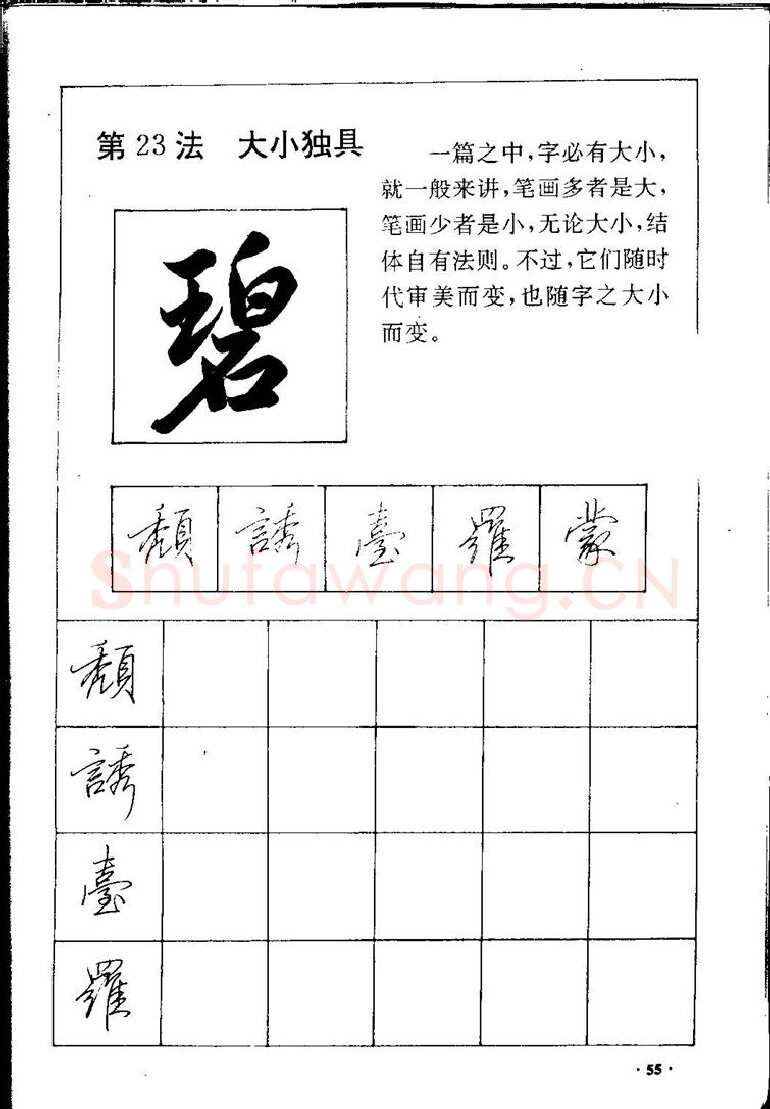 第23法 大小独具
一篇之中,字必有大小,
就一般来讲,笔画多者是大,
笔画少者是小,无论大小,结
体自有法则。不过,它们随时
代审美而变,也随字之大小
而变。
碧
頽 誘 臺 羅 蒙
Shufawang.CN
頽
誘
臺
羅
·55·